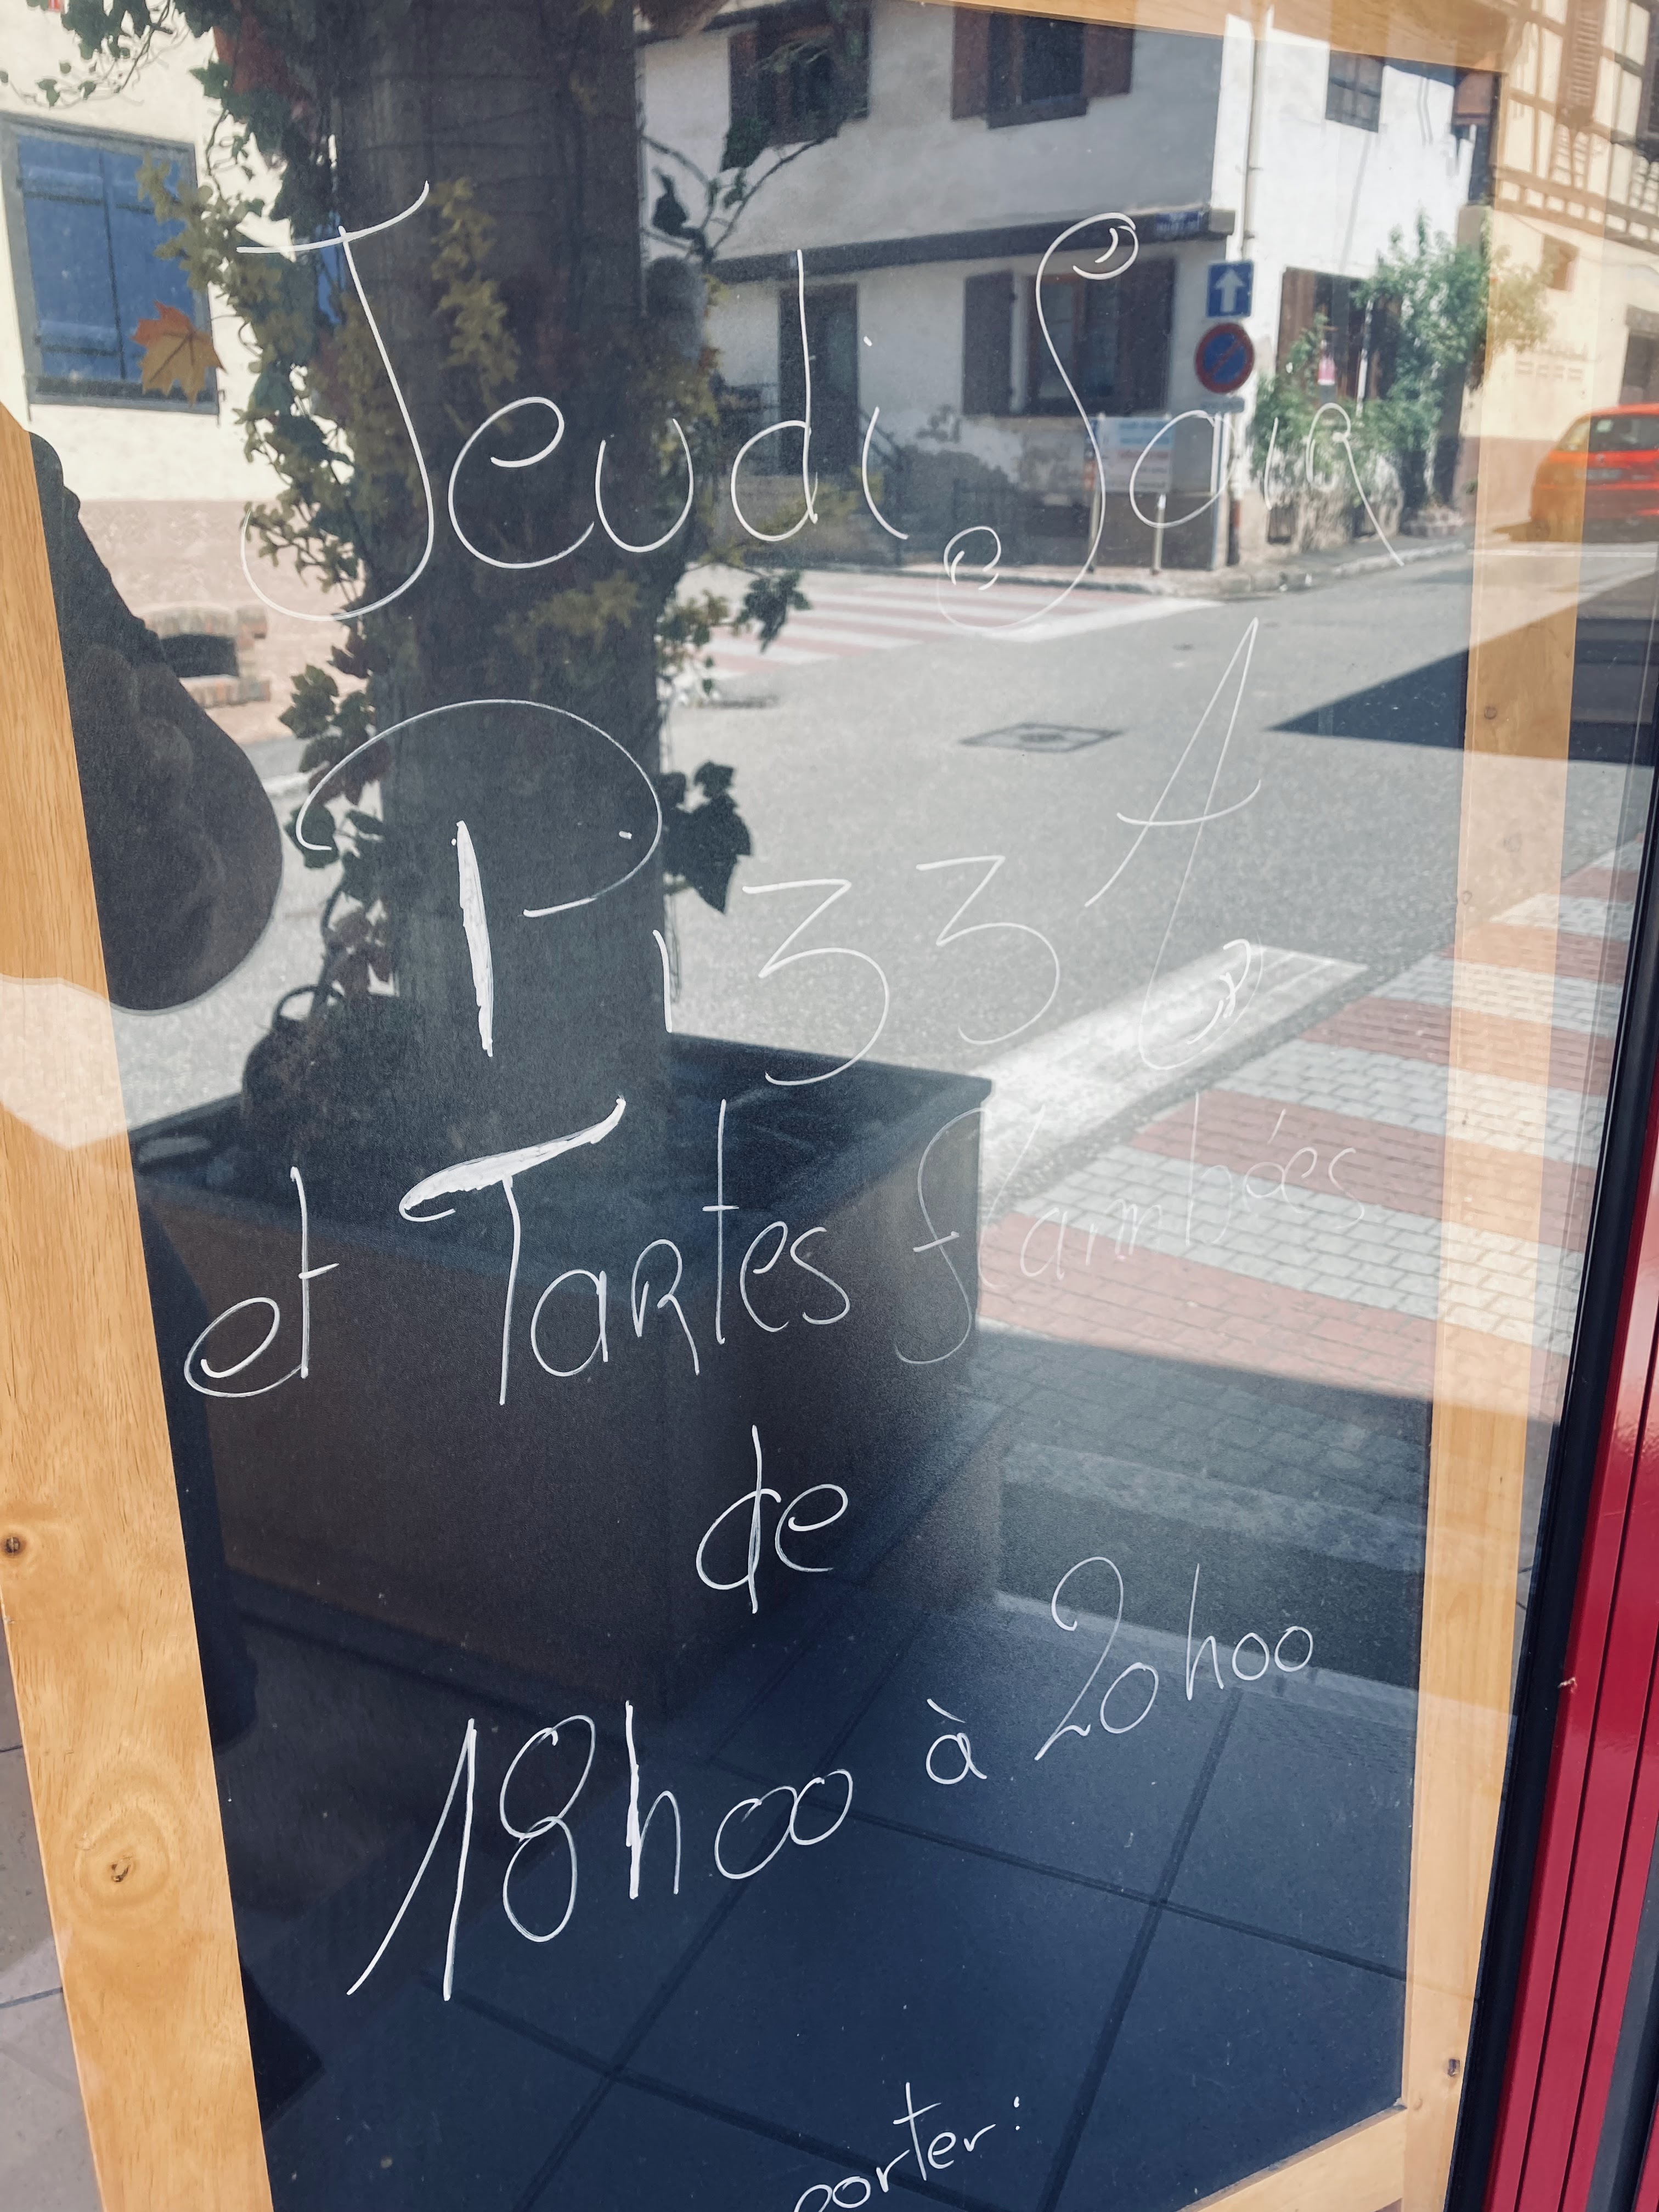 Jeudi Soir
PizzA
et Tartes flambées
de
18h00 à 20h00
porter: